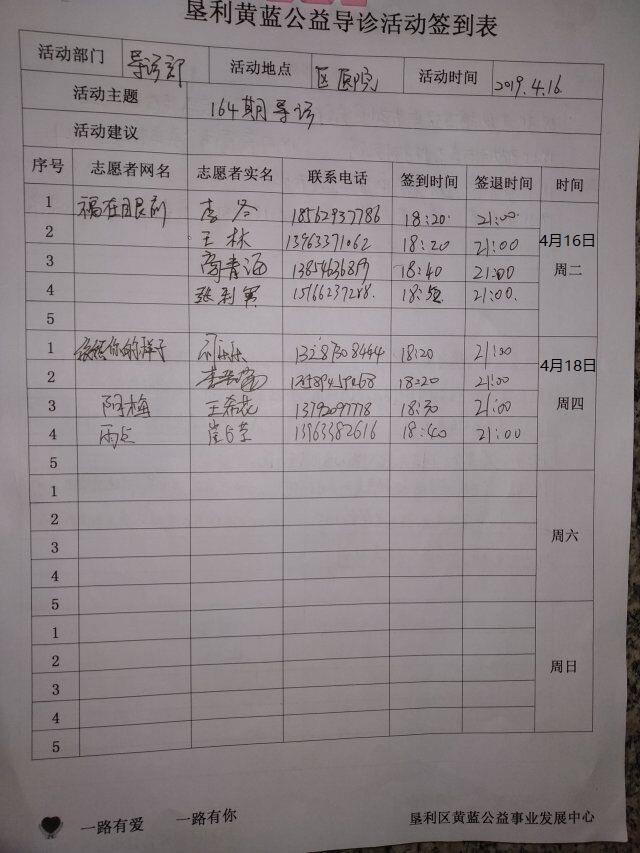 垦利黄蓝公益导诊活动签到表
活动部门 导诊部 活动地点 区医院 活动时间 2019.4.16
活动主题 164期导诊
活动建议
序号 志愿者网名 志愿者实名 联系电话 签到时间 签退时间 时间
1 福在眼前 李冬 18562937786 18:20 21:00
2 王林 13963371062 18:20 21:00
4月16日
周二
3 18:40 21:00
4 张利军 15166237288 21:00
5
1 你的样子 18:20 21:00
4月18日
周四
2 18:20 21:00
3 阿梅 王希花 13792097778 18:30 21:00
4 雨点 13963382616 18:40 21:00
5
1
2
3
周六
4
5
1
2
3
周日
4
5
一路有爱 一路有你
垦利区黄蓝公益事业发展中心